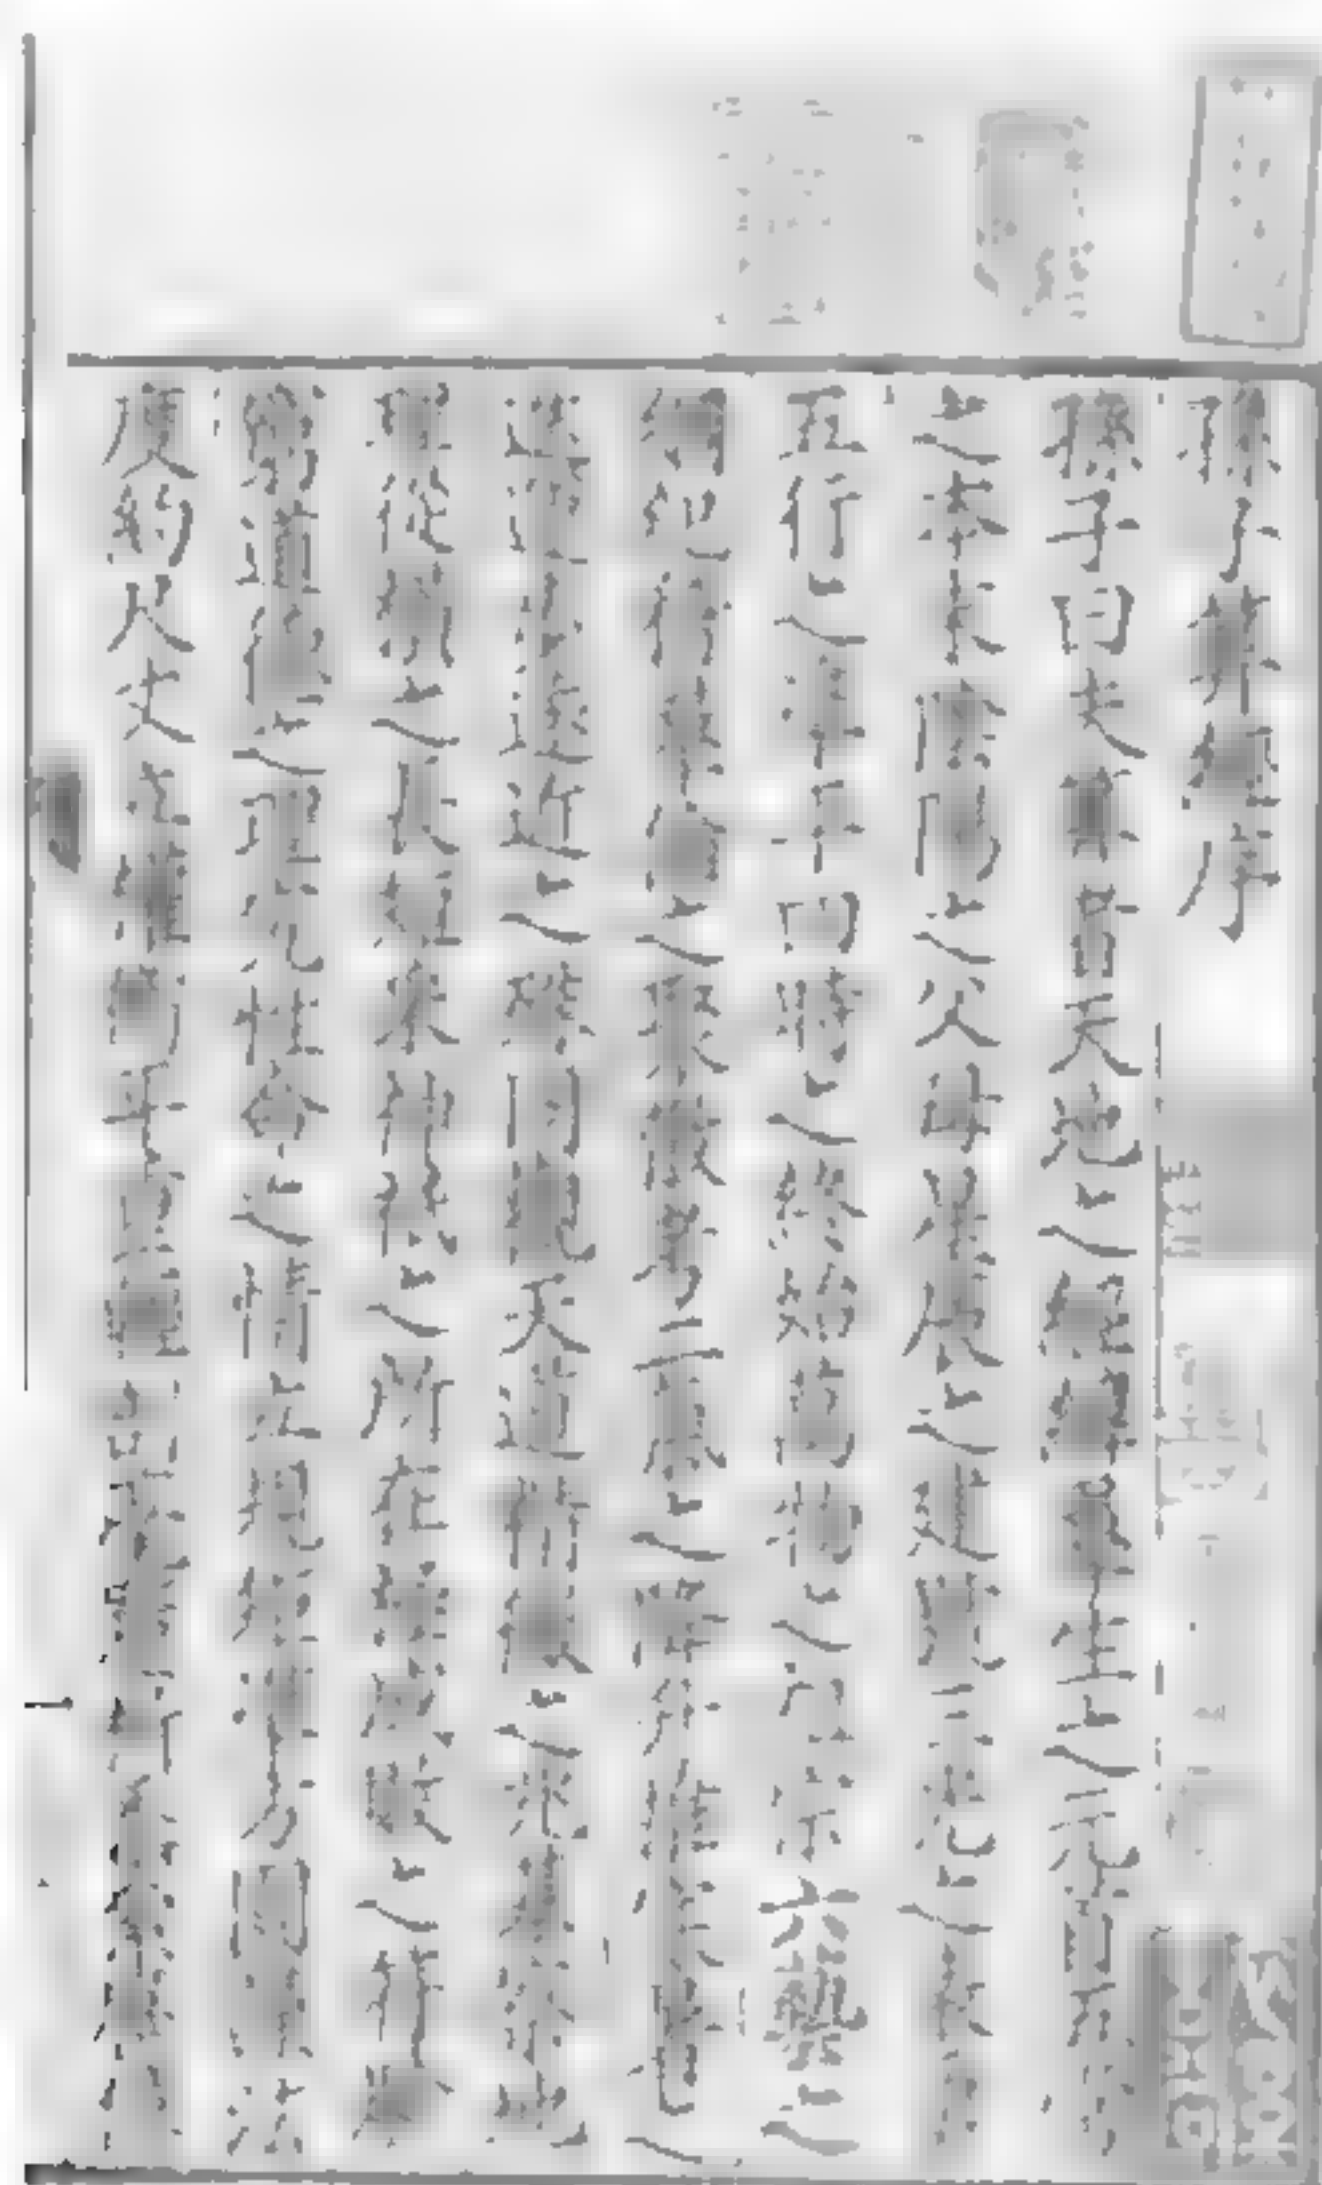 孫子筭經序
孫子曰夫筭者天地之經緯羣生之元首五常
之本末陰陽之父母星辰之建號三光之表裏
五行之準平四時之終始萬物之祖宗六藝之
綱紀稽羣倫之聚散考二氣之降升推寒暑之
迭運步遠近之殊同觀天道精微之兆基察地
理從橫之長短采神祇之所在極成敗之符驗
窮道德之理究性命之情立規矩準方圓謹法
度約尺丈立權衡平重輕剖毫釐析黍